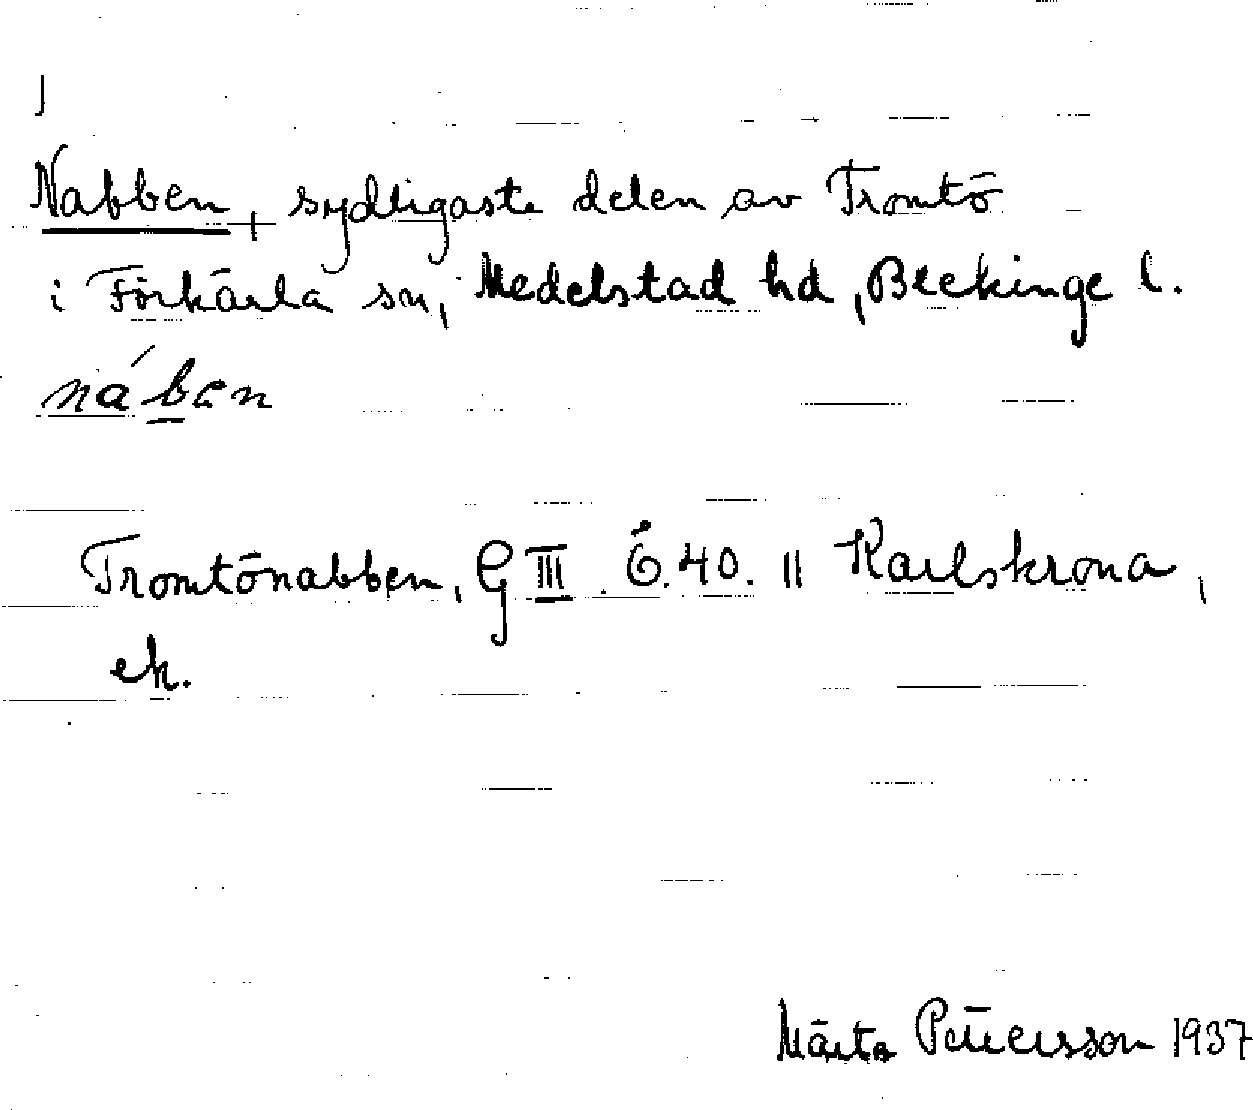 Nabben, sydligaste delen av Tromtö
i Förkärla sn, Medelstad hd, Blekinge l.
nábən
Tromtönabben, G III. Ö.40. 11 Karlskrona,
ek.
Märta Pettersson 1937